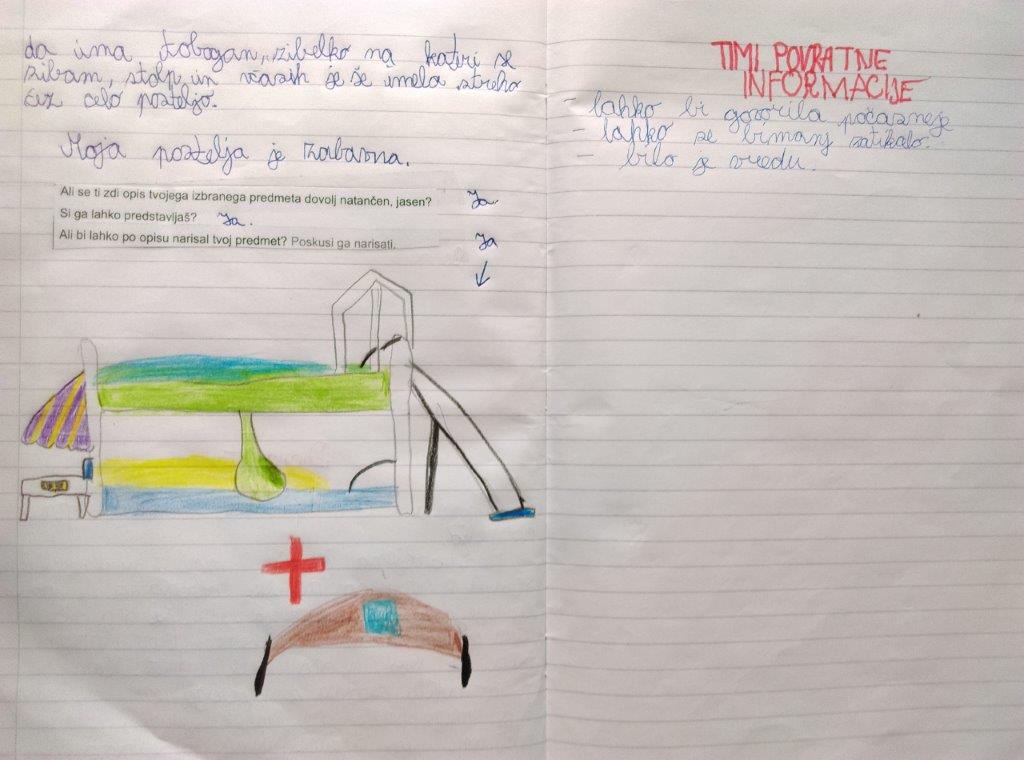 da ima tobogan, zibelko na kateri se
zibam, stolp, in včasih je še imela streho
čez celo posteljo.
Moja postelja je zabavna.
Ali se ti zdi opis tvojega izbranega predmeta dovolj natančen, jasen? Ja.
Si ga lahko predstavljaš? Ja.
Ali bi lahko po opisu narisal tvoj predmet? Poskusi ga narisati. Ja
TIMI POVRATNE
INFORMACIJE
- lahko bi govorila počasneje
- lahko se bi manj zatikalo.
- bilo je vredu.